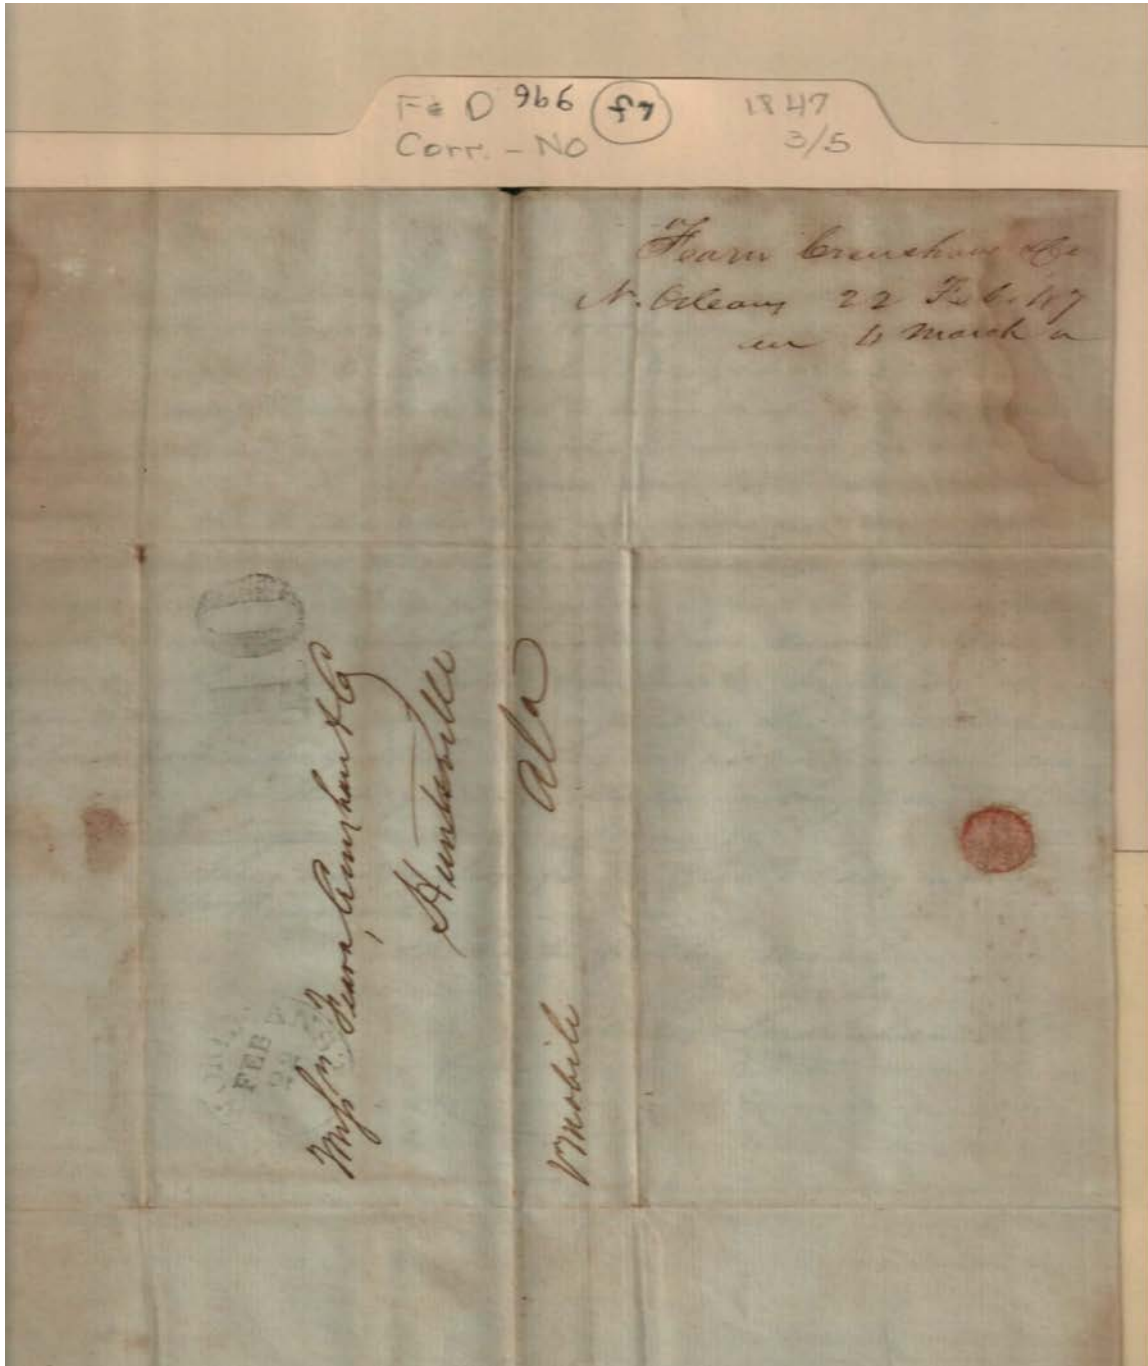 Fe D 966 f7 1847
Corr. - NO 3/5
Fearn Crenshaw & Co
N. Orleans 22 Feb. 47
4 March
10
Messrs Fearn, Crenshaw & Co
Huntsville
Ala
Mobile
FEB